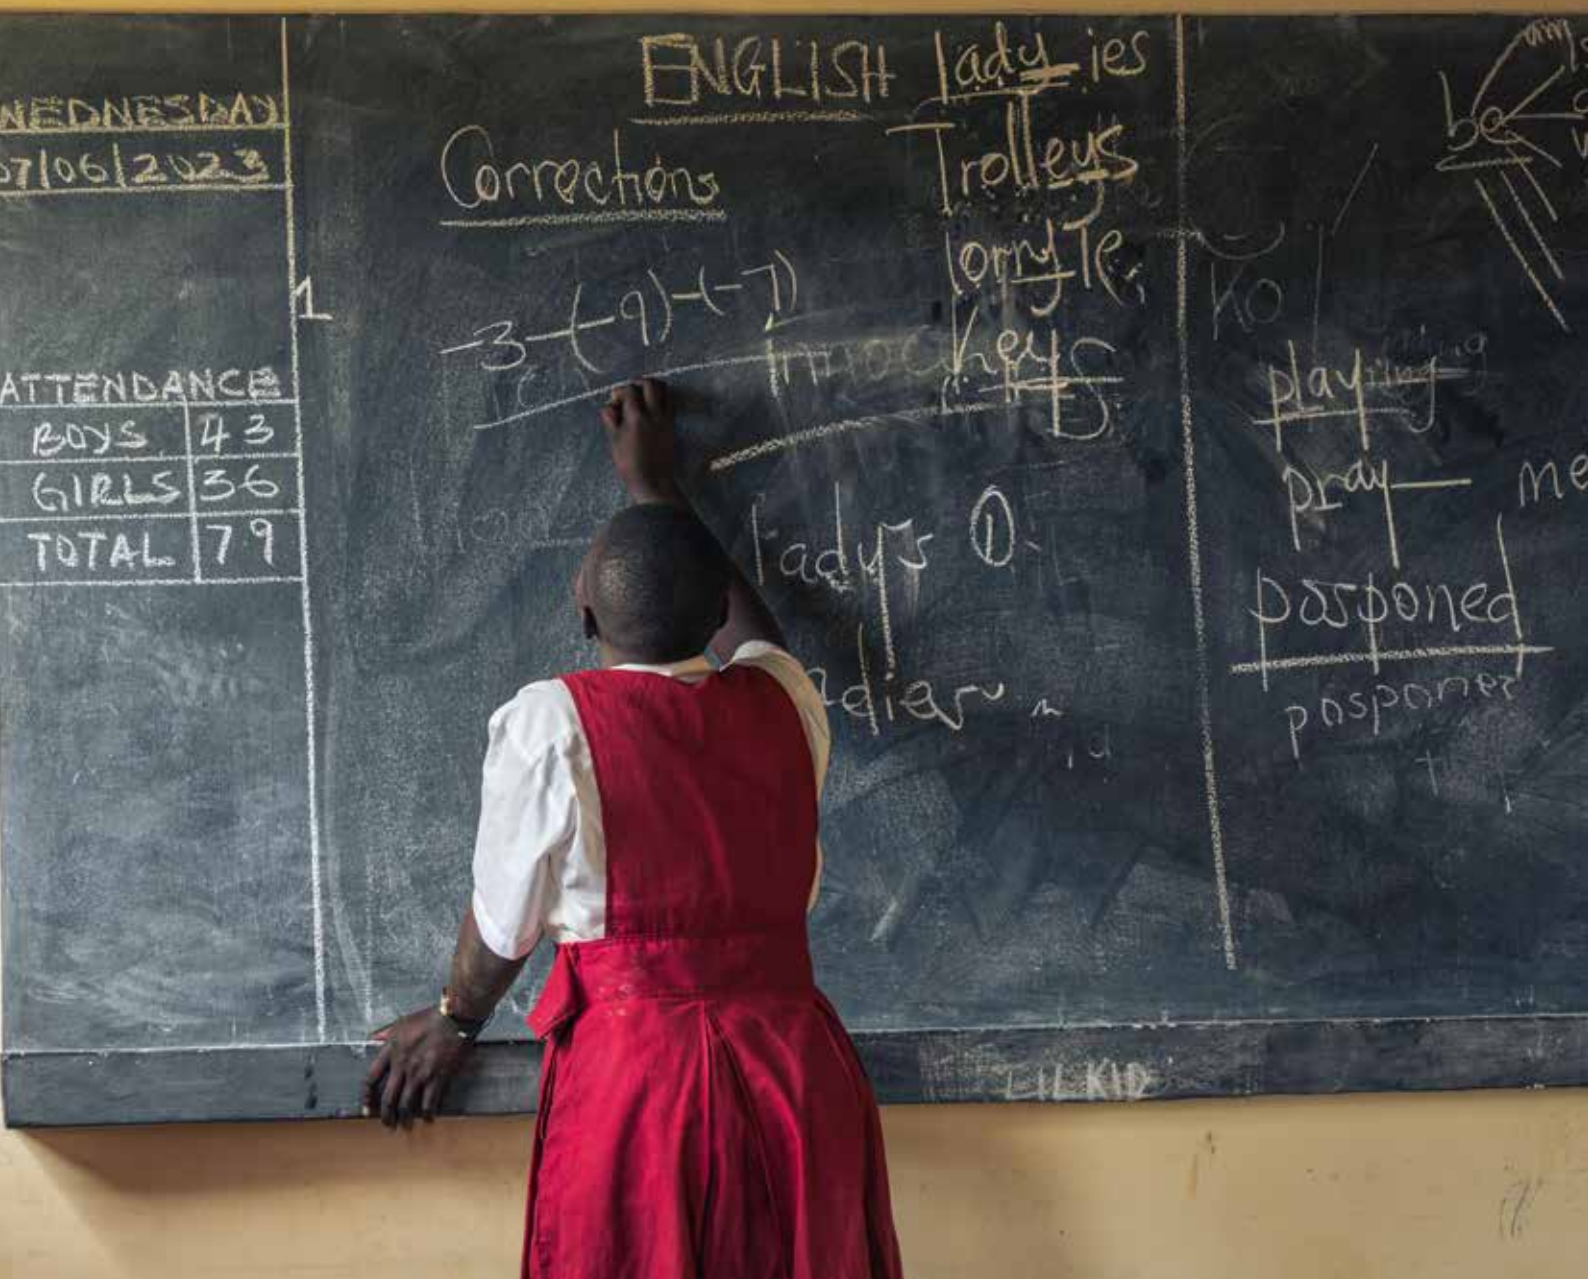 WEDNESDAY
07/06/2023
ATTENDANCE
BOYS 43
GIRLS 36
TOTAL 79
1
ENGLISH
Corrections
-3-(-9)-(-7)
lady ies
Trolleys
lorry Ie
Key
lady's
be
Ko
play
pray
me
posponed
LILKID